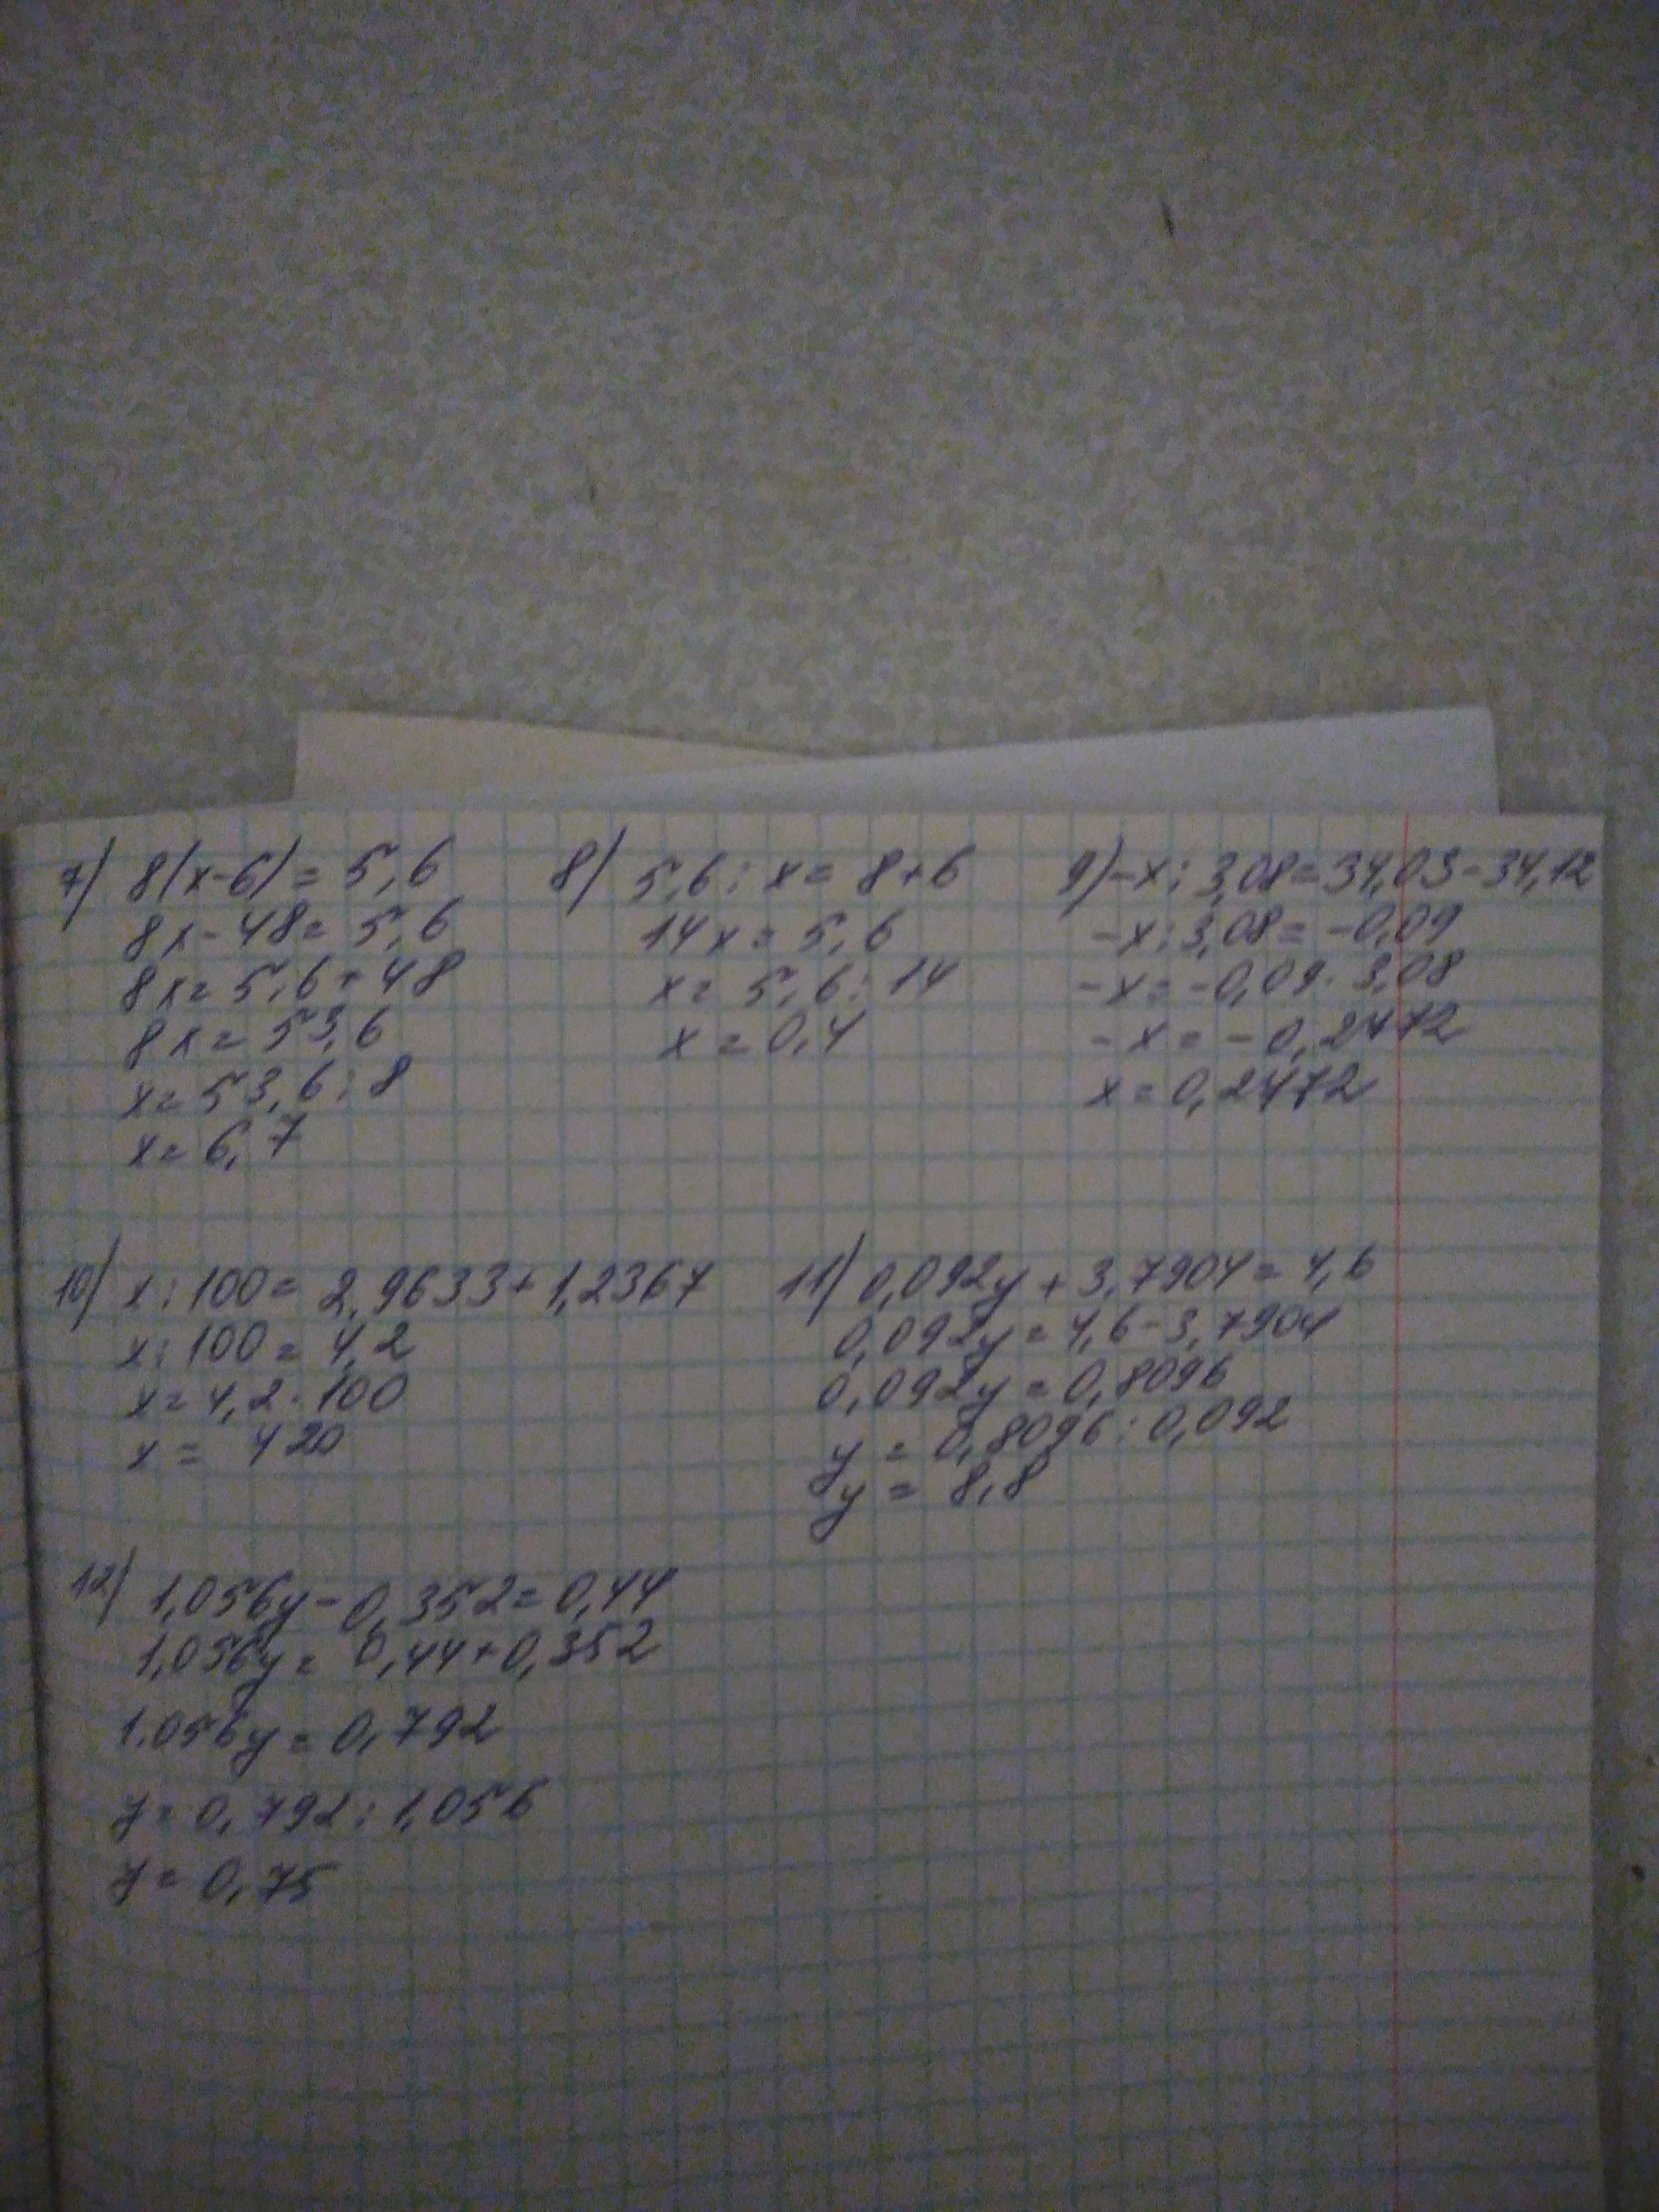 7) 8(x-6)=5,6
8x-48=5,6
8x=5,6+48
8x=53,6
x=53,6:8
x=6,7
8) 5,6:x=8+6
14x=5,6
x=5,6:14
x=0,4
9) -x:3,08=34,03-34,12
-x:3,08=-0,09
-x=-0,09·3,08
-x=-0,2472
x=0,2472
10) x:100=2,9633+1,2367
x:100=4,2
x=4,2·100
x=420
11) 0,092y+3,7904=4,6
0,092y=4,6-3,7904
0,092y=0,8096
y=0,8096:0,092
y=8,8
12) 1,056y-0,352=0,44
1,056y=0,44+0,352
1.056y=0,792
y=0,792:1,056
y=0,75